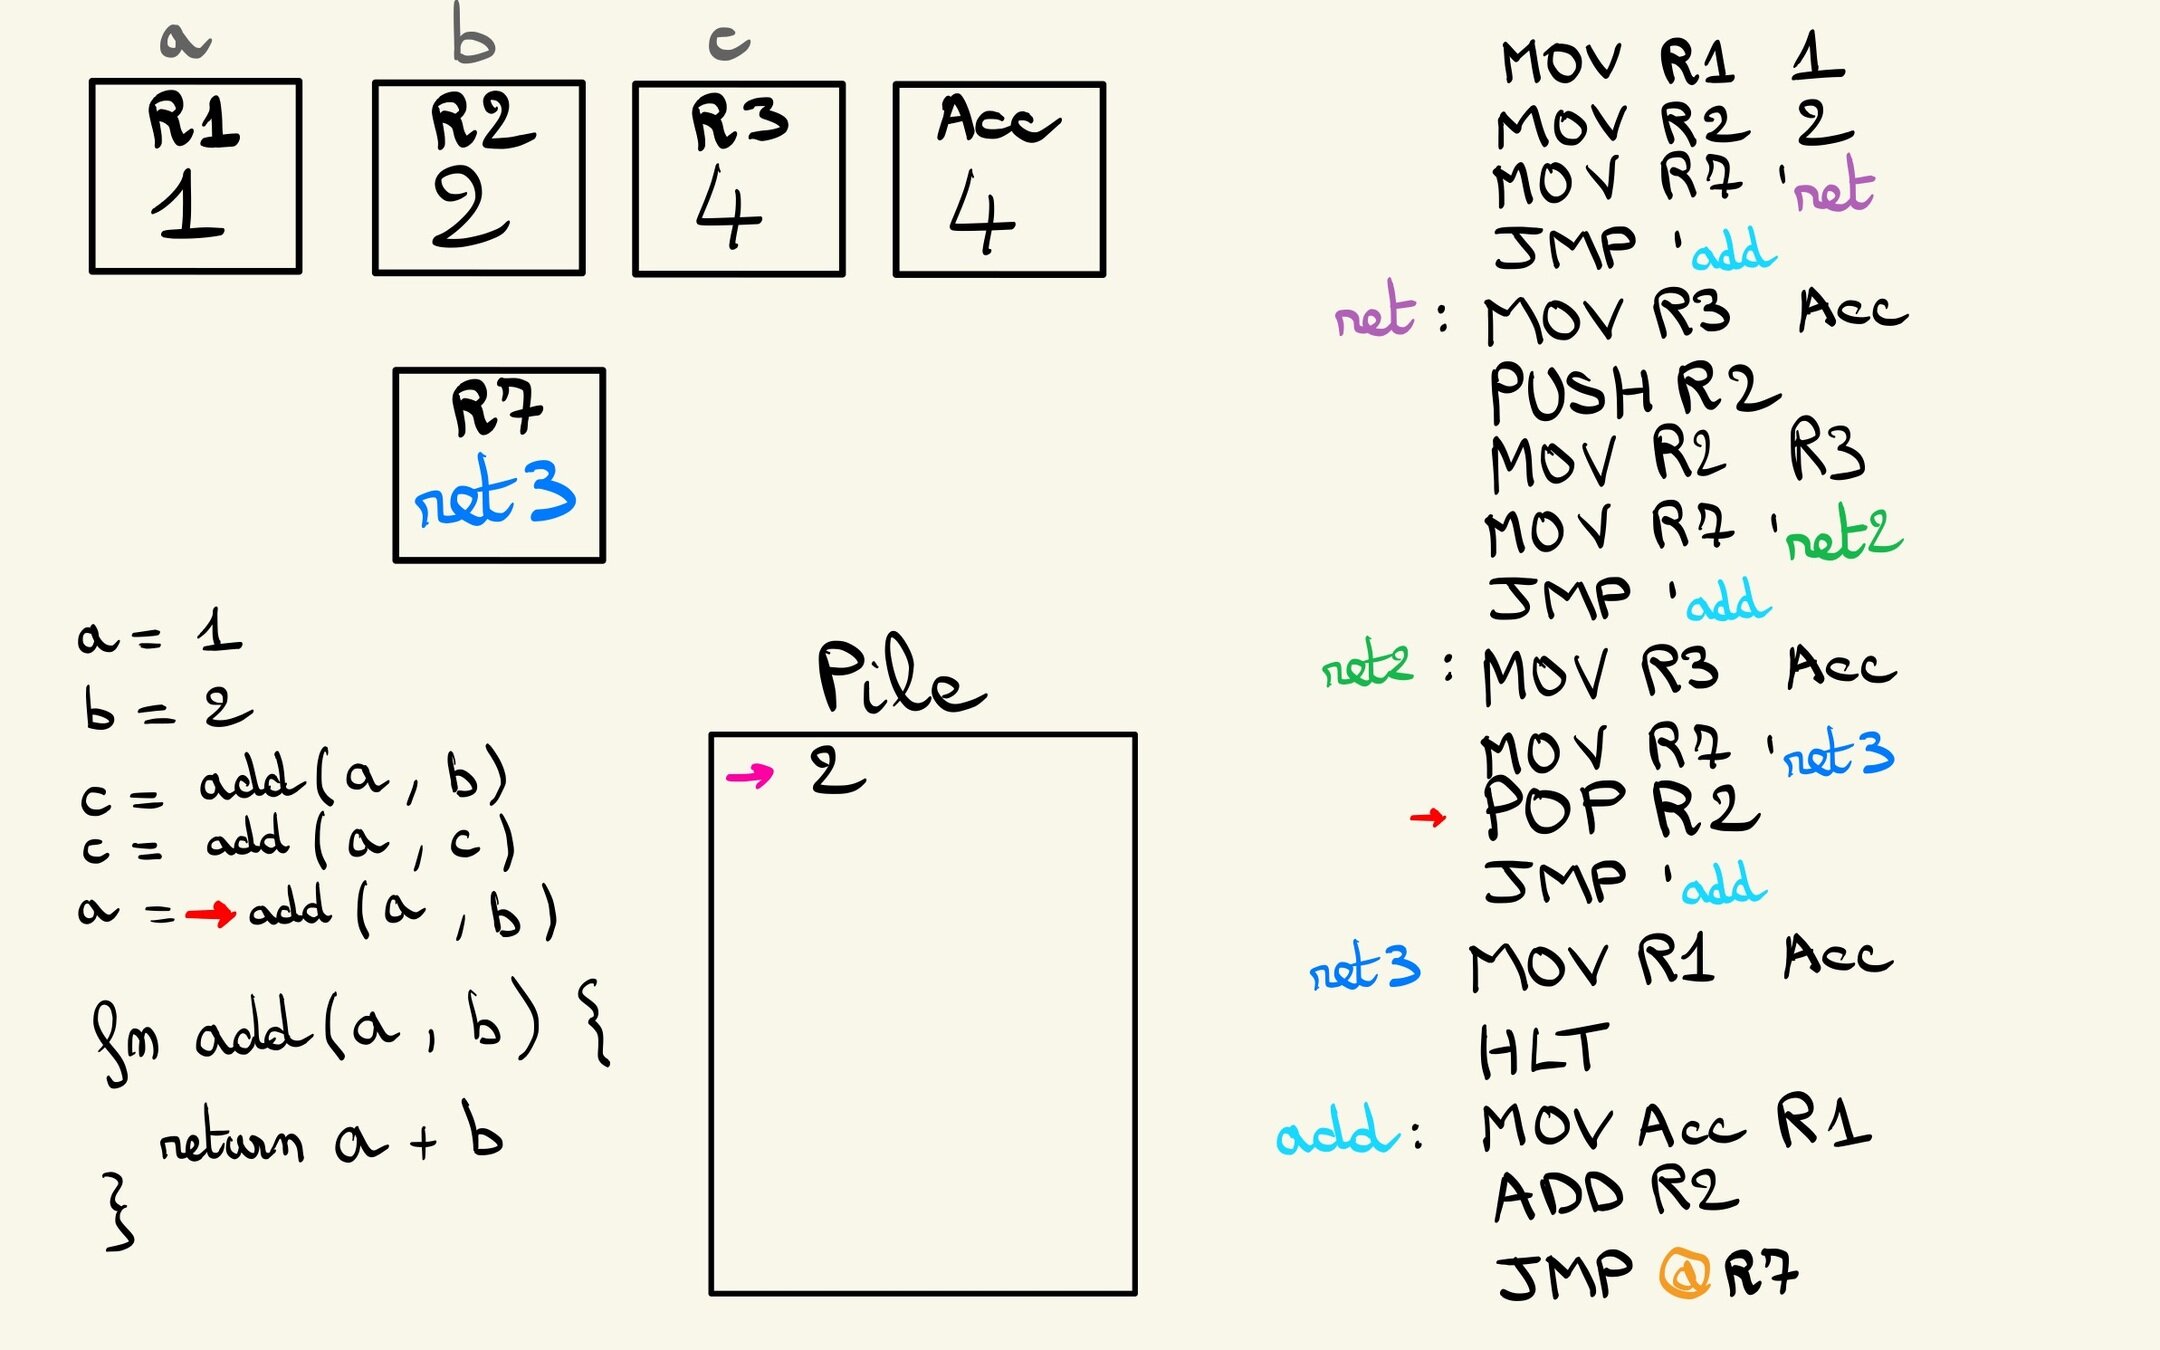 a b c
R1 R2 R3 Acc
1 2 4 4
R7
ret3
a = 1
b = 2
c = add(a, b)
c = add(a, c)
a = → add(a, b)
fn add(a, b) {
return a + b
}
Pile
→ 2
MOV R1 1
MOV R2 2
MOV R7 'ret
JMP 'add
ret: MOV R3 Acc
PUSH R2
MOV R2 R3
MOV R7 'ret2
JMP 'add
ret2: MOV R3 Acc
MOV R7 'ret3
→ POP R2
JMP 'add
ret3 MOV R1 Acc
HLT
add: MOV Acc R1
ADD R2
JMP @R7